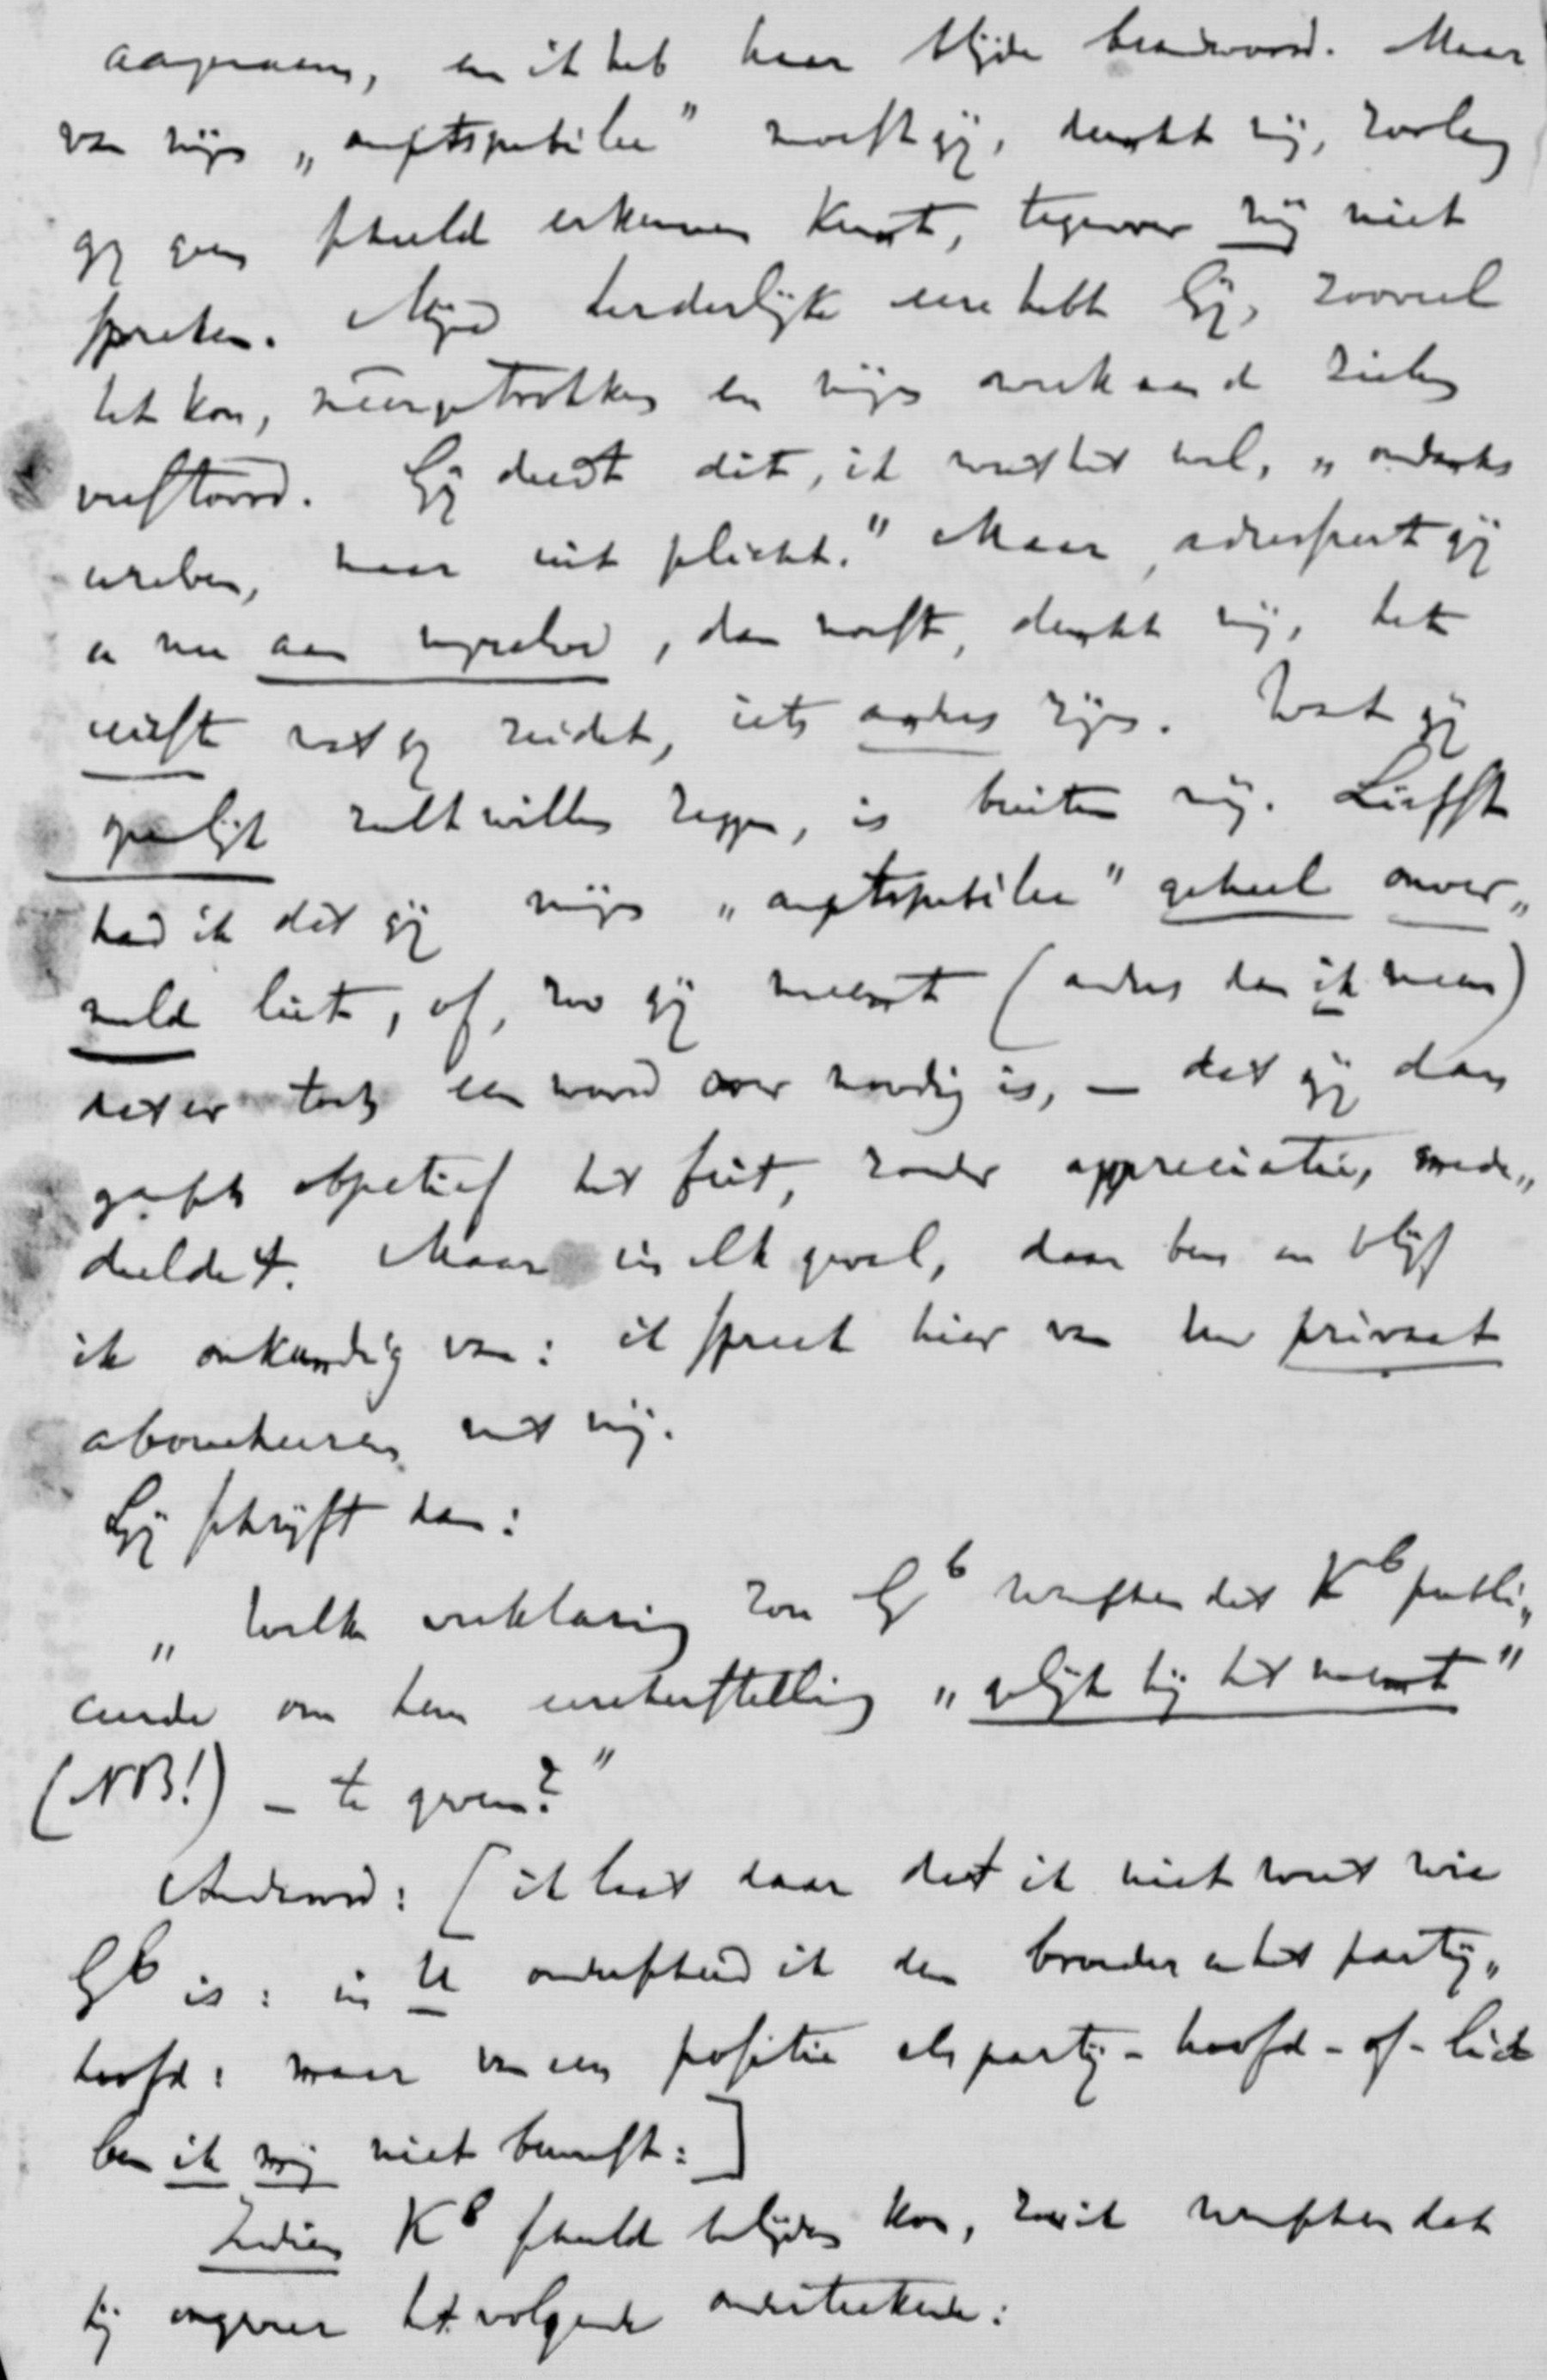 aangenaam, en ik heb haar blijde beantwoord. Maar
van mijn „ambtsjubilee" moest gij, dunkt mij, zoolang
gij geen schuld erkennen kunt, tegenover mij niet
spreken. Mijn herderlijke eere hebt Gij, zooveel
het kon, neergetrokken en mijn werk aan de zielen
verstoord. Gij deedt dit, ik weet het wel, „ondanks
uzelven, maar uit plicht." Maar, adresseert gij
u nu aan mijzelven, dan moest, dunkt mij, het
eerste wat gij zeidet, iets anders zijn. Wat gij
openlijk zult willen zeggen, is buiten mij. Liefst
had ik dat gij mijn „ambtsjubilee" geheel onver„
meld liet, of, zoo gij meent (anders dan ik meen)
dat er toch een woord over noodig is, — dat gij dan
gansch objectief het feit, zonder appreciatie, mede„
deeldet. Maar in elk geval, daar ben en blijf
ik onkundig van: ik spreek hier van uw privaat
aboucheeren met mij.
Gij schrijft dan:
„Welke verklaring zou Gb wenschen dat Kb publi„
ceerde om hem eereherstelling „gelijk hij het noemt"
(NB!) — te geven?"
Antwoord: [ik laat daar dat ik niet weet wie
Gb is: in U onderscheid ik den broeder en het partij„
hoofd: maar van een positie als partij-hoofd-of-lid
ben ik mij niet bewust:]
Indien Kb schuld belijden kon, zou ik wenschen dat
hij ongeveer het volgende onderteekende: